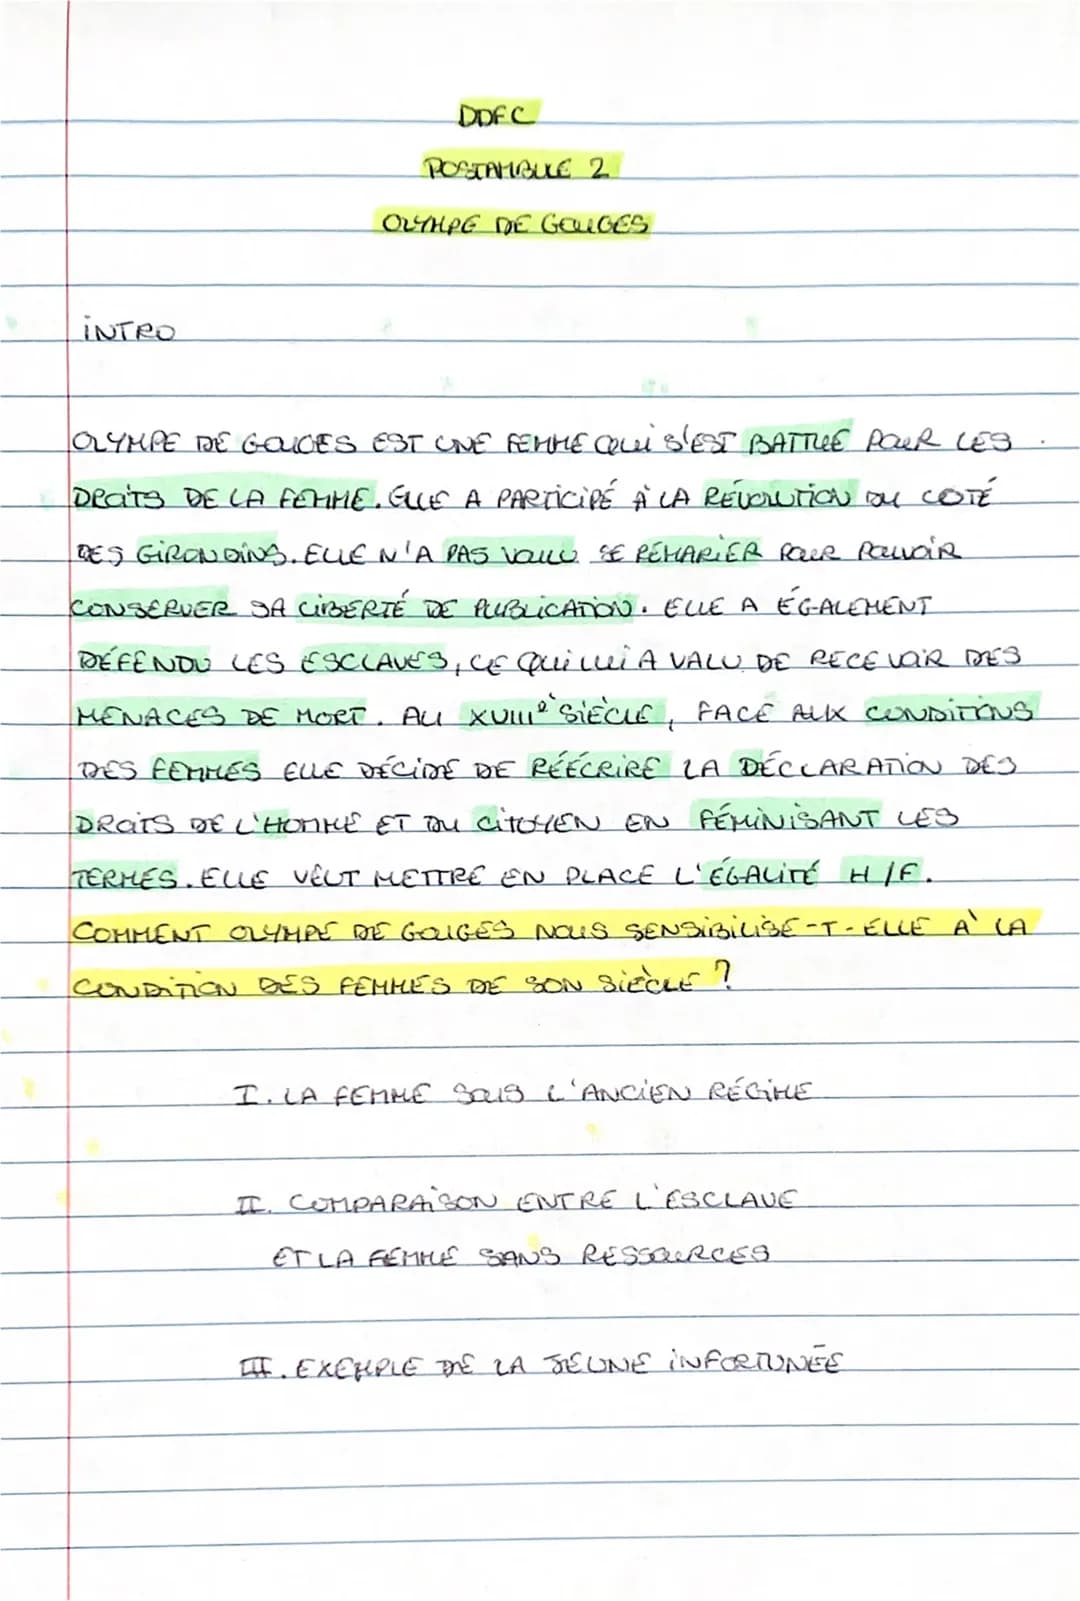 DDFC
POSTAMBULE 2
OLYMPE DE GOUGES
INTRO
OLYMPE DE GOUGES EST UNE FEMME QUI S'EST BATTUE POUR LES
DROITS DE LA FEMME. ELLE A PARTICIPÉ À LA RÉVOLUTION DU COTÉ
DES GIRONDINS. ELLE N'A PAS VOULU SE REMARIER POUR POUVOIR
CONSERVER SA LIBERTÉ DE PUBLICATION. ELLE A ÉGALEMENT
DÉFENDU LES ESCLAVES, CE QUI LUI A VALU DE RECEVOIR DES
MENACES DE MORT. AU XVIIIe SIÈCLE, FACE AUX CONDITIONS
DES FEMMES ELLE DÉCIDE DE RÉÉCRIRE LA DÉCLARATION DES
DROITS DE L'HOMME ET DU CITOYEN EN FÉMINISANT LES
TERMES. ELLE VEUT METTRE EN PLACE L'ÉGALITÉ H/F.
COMMENT OLYMPE DE GOUGES NOUS SENSIBILISE-T-ELLE À LA
CONDITION DES FEMMES DE SON SIÈCLE ?
I. LA FEMME SOUS L'ANCIEN RÉGIME
II. COMPARAISON ENTRE L'ESCLAVE
ET LA FEMME SANS RESSOURCES
III. EXEMPLE DE LA JEUNE INFORTUNÉE